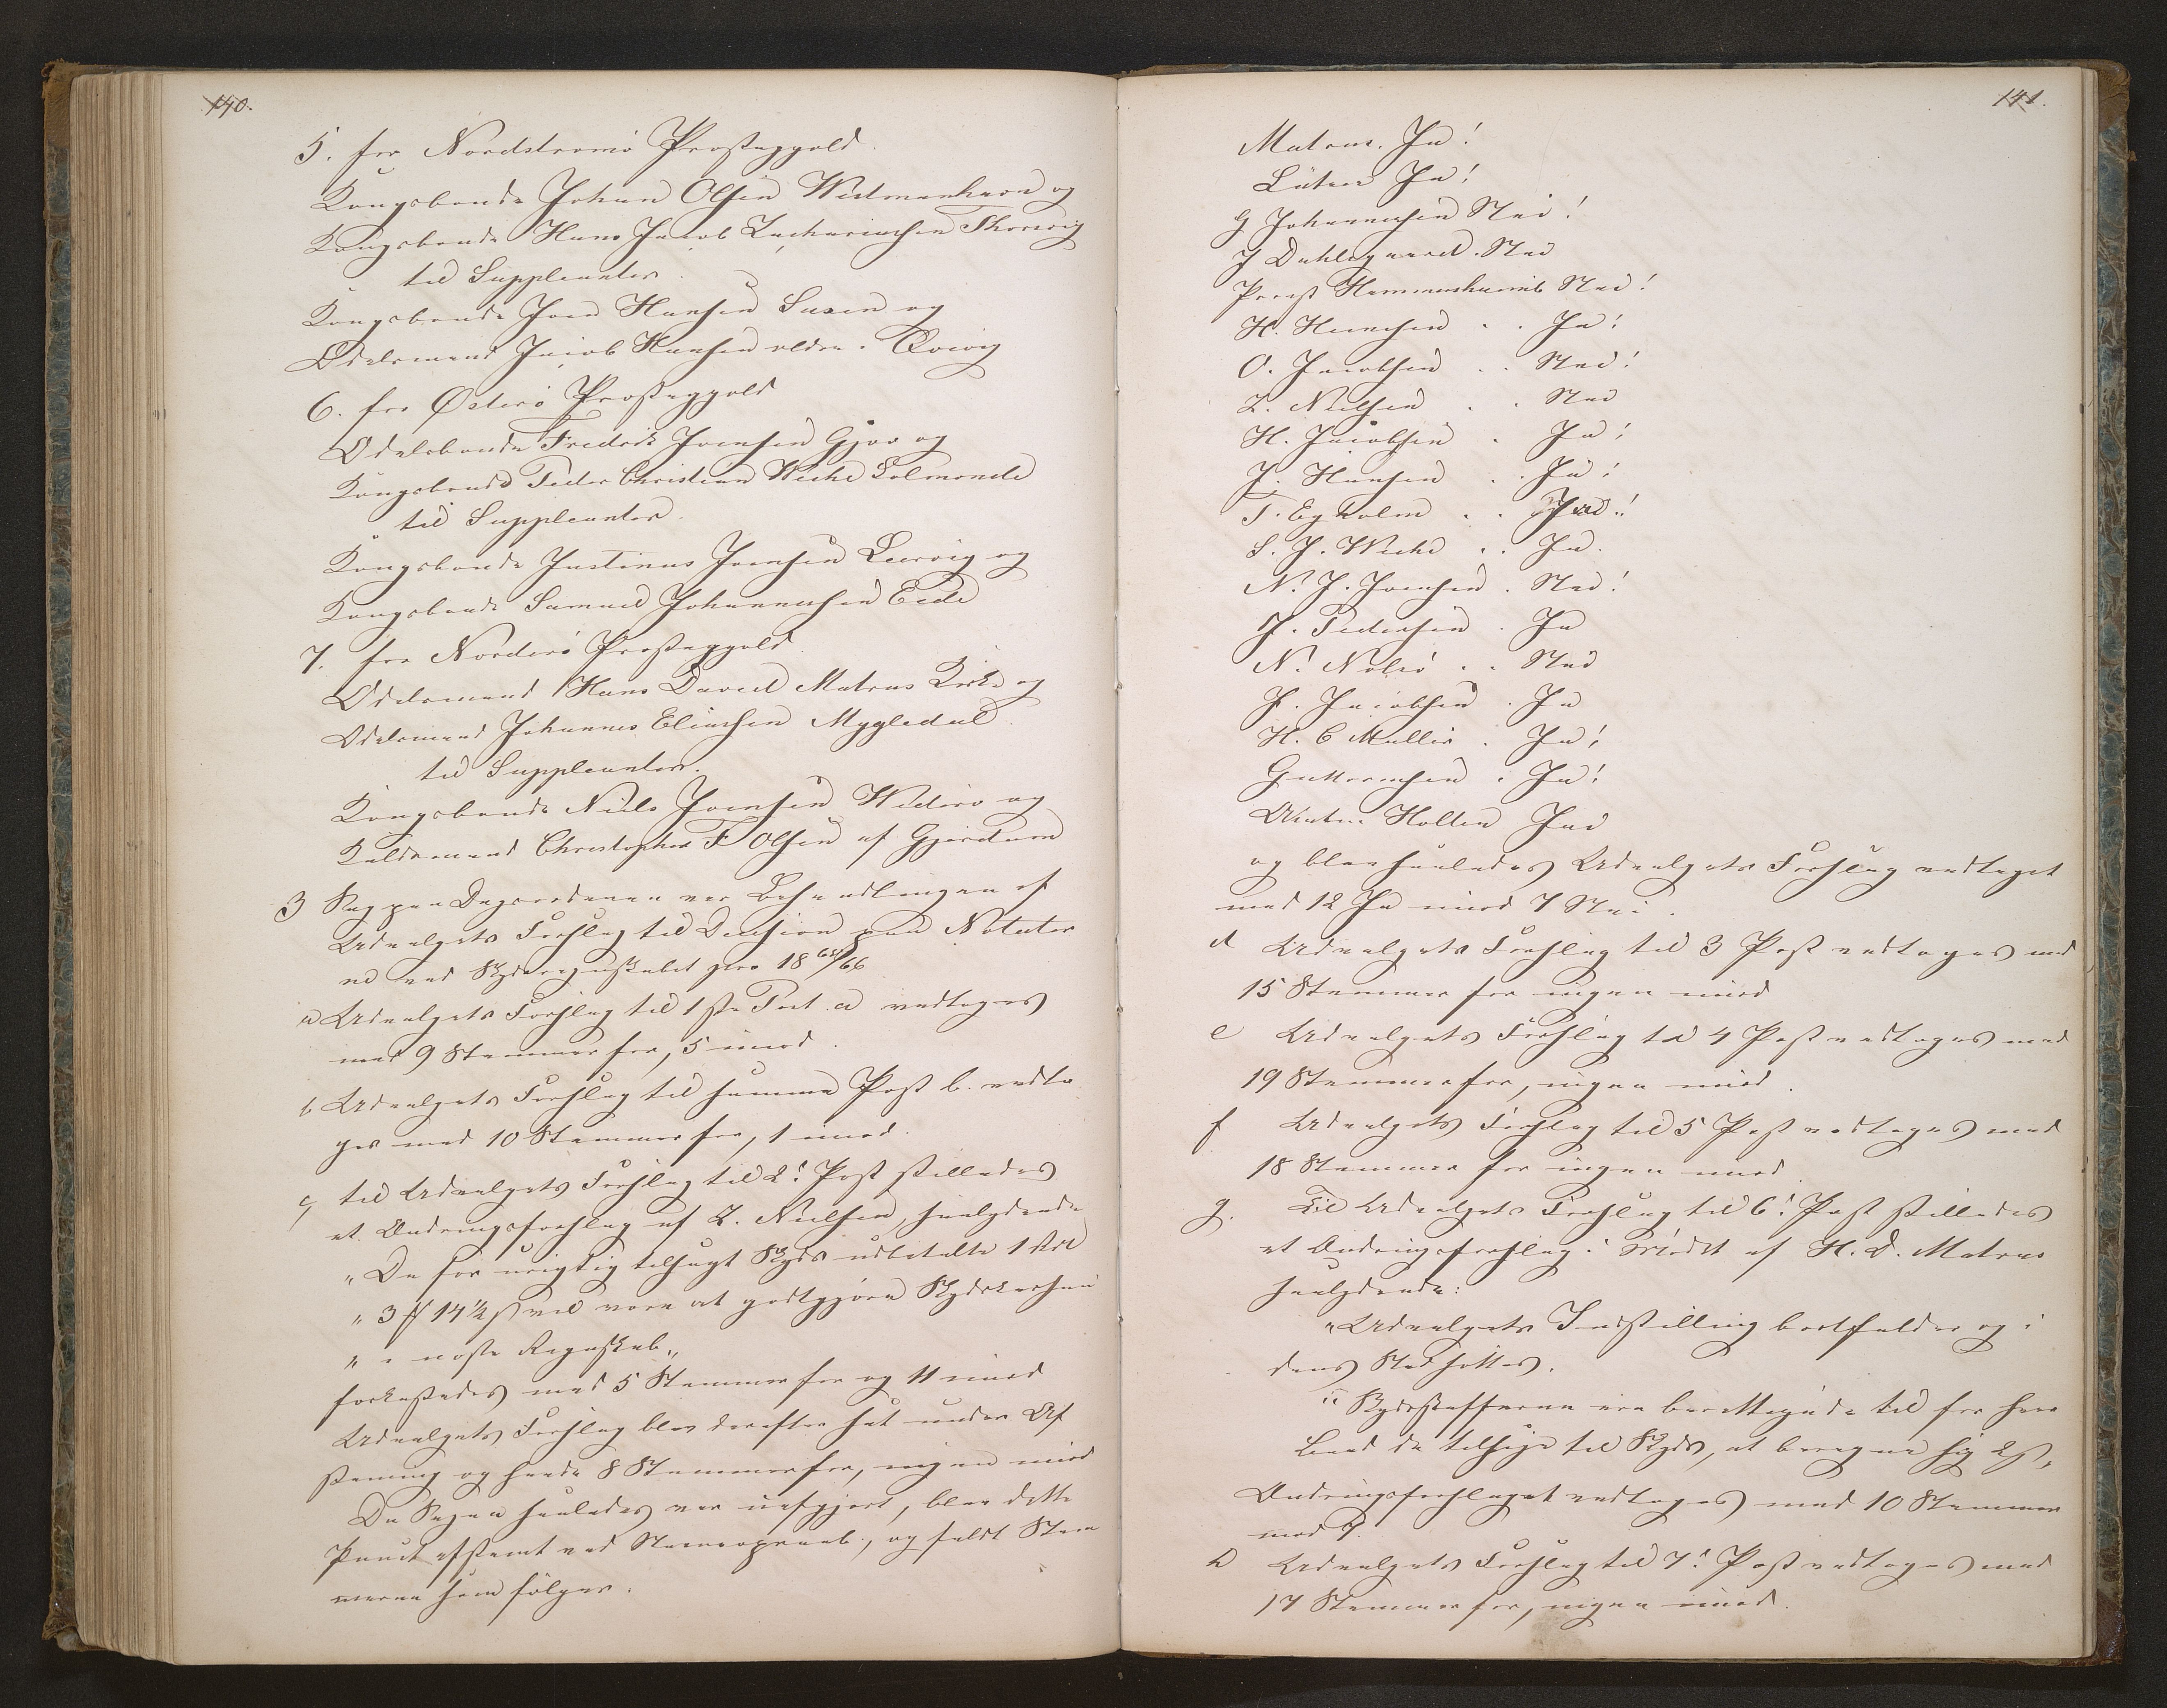 140.
5. for Nordstrømø Præstegjeld.
Kongsbonde Johan Olsen Westmanhavn og
Kongsbonde Hans Jacob Zachariasen Thorsvig
til Suppleanter
Kongsbonde Joen Hansen Saxen og
Odelsmand Jacob Hansen ældre. Qvivig
6. for Østerø Præstegjeld
Odelsbonde Fredrik Joensen Gjov og
Kongsbonde Peder Christian Weihe Solmonde
til Suppleanter.
Kongsbonde Justinus Joensen Leervig og
Kongsbonde Samuel Johannesen Eide
7. for Norderø Præstegjeld
Odelsmand Hans David Matras Kirke og
Odelsmand Johannes Eliassen Mygledal.
til Suppleanter.
Kongsbonde Niels Joensen Widerø og
Christopher F Olsen af Gjerdum
3 Sag paa Dagsordenen var Behandlingen af
Udvalgets Forslag til Decision paa Notater
ne ved Skydsregnskabet pro 18 65/66
a Udvalgets Forslag til 1ste Post. a vedtoges
med 9 Stemmer for, 5 imod.
b Udvalgets Forslag til samme Post b. vedto
ges med 10 Stemmer for, 1 imod.
c til Udvalgets Forslag til 2d Post stilledes
et Ændringsforslag af Z. Nielsen, saalydende
"De for urigtig tilsagt Skyds udbetalte 1 Rd
" 3 ℳ 14½ ß vil være at godtgjøre Skydskassen
" i næste Regnskab"
forkastedes med 5 Stemmer for og 11 imod
Udvalgets Forslag blev derefter sat under Af
stemning og havde 8 Stemmer for, ingen imod
Da Sagen saaledes var uafgjort, blev dette
Punct afstemt ved Navneopraab, og faldt Stem
merne som følger.
141.
Matras. Ja!
Lützen Ja!
G Johannesen Nei!
J Dahlsgaard. Nei
Provst Hammershaimb Nei!
H. Heinesen . . Ja!
O. Jacobsen . . Nei!
Z. Nielsen . . Nei
H. Jacobsen . Ja!
J. Hansen . . Ja!
T. Egholm . .
S. J. Weihe . . Ja.
N. J. Joensen . Nei!
J. Pedersen . Ja
N. Nolsø . . Nei
J. Jacobsen . Ja
H. C Müller . Ja!
Guttormsen . Ja!
Holten Ja
og blev saaledes Udvalgets Forslag vedtaget
med 12 Ja imod 7 Nei.
d Udvalgets Forslag til 3 Post vedtoges med
15 Stemmer for ingen imod
e Udvalgets Forslag til 4 Post vedtoges med
19 Stemmer for, ingen imod.
f Udvalgets Forslag til 5 Post vedtoges med
18 Stemmer for ingen imod.
g. Til Udvalgets Forslag til 6d Post stilledes
et Ændringsforslag i Mødet af H. D. Matras
saalydende:
"Udvalgets Indstilling bortfalder og i
dens Sted sættes.
" Skydsskafferne ere berettigede til for hver
Baad de tilsige til Skyds, at beregne sig 2 ß,
Ændringsforslaget vedtoges med 10 Stemmer
mod 7.
h Udvalgets Forslag til 7d Post vedtoges med
17 Stemmer for, ingen imod.